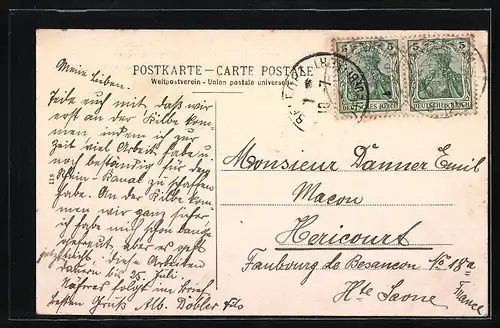 POSTKARTE – CARTE POSTALE
Weltpostverein – Union postale universelle
5 5
DEUTSCHES REICH DEUTSCHES REICH
Meine Lieben.
Teile euch mit, daß wir
erst an der Kilbe kom-
men indem ich zur
Zeit viel Arbeit habe u
noch beständig für den
Rhein-Kanal zu schaffen
habe. An der Kilbe kom-
men wir ganz sicher
ich habe mich schon lange
gefreut, aber es geht
jetzt nicht. Diese Arbeiten
dauern bis 25. Juli.
Näheres folgt im Brief
besten Gruß Alb. Döbler fils
118
Monsieur Danner Emil
Macon
Hericourt
Faubourg de Besancon No 18a
Hte Saone
France